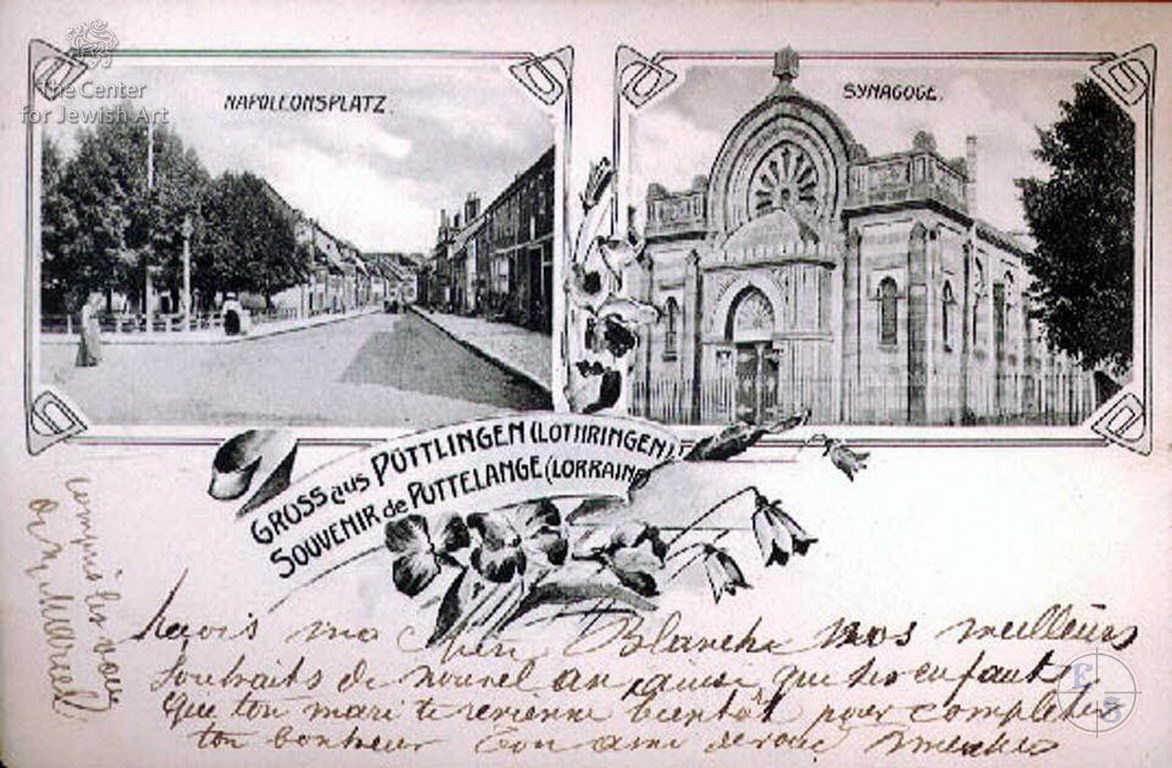 The Center
for Jewish Art
NAPOLLONSPLATZ.
SYNAGOGE.
GRUSS aus PÜTTLINGEN (LOTHRINGEN).
SOUVENIR de PUTTELANGE (LORRAINE)
Reçois ma Blanche nos meilleurs
souhaits de nouvel an ainsi que tes enfants
Que ton mari te revienne bientôt pour completer
ton bonheur Ton ami
les
Marcel
E S